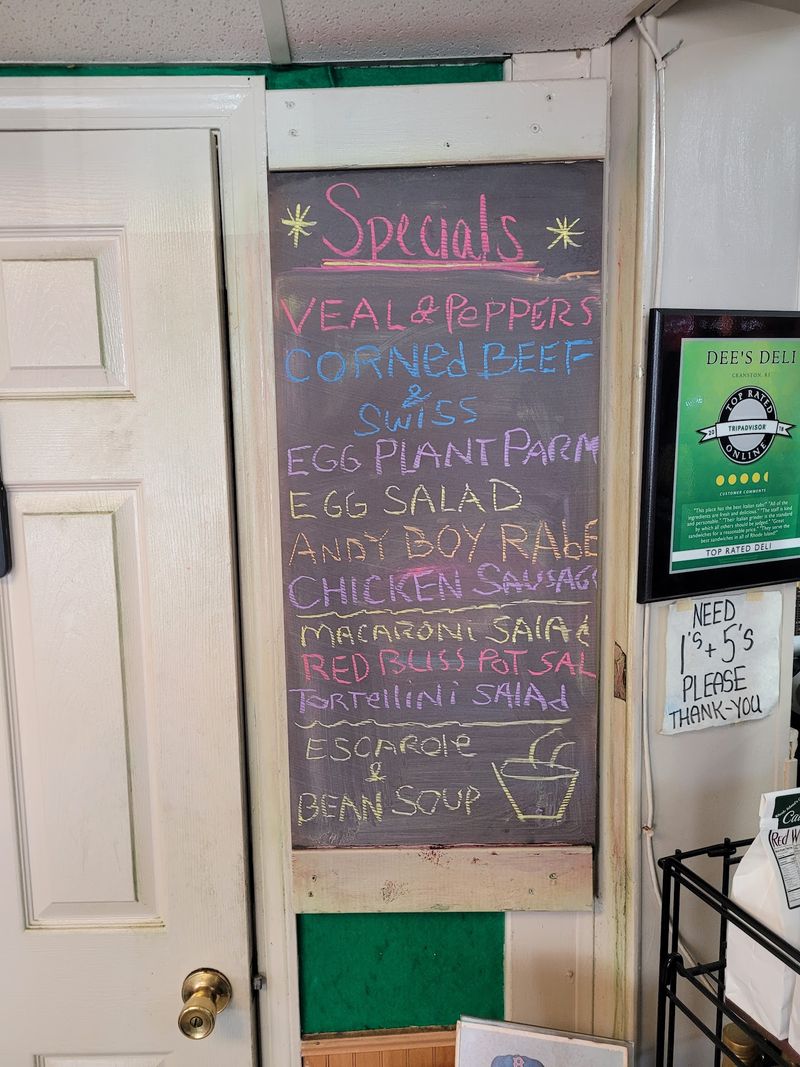 Specials
VEAL & PePPERS
CORNed BEEF
&
SWISS
EGG PLANT PARM
EGG SALAD
ANDY BOY RAbE
CHICKEN SAUSAG
MACARONi SAlAd
RED BLISS POT SAL
TORTEllini SAlAd
ESCAROlE
&
BEAN SOUP
DEE'S DELI
CRANSTON, RI
TOP RATED
TRIPADVISOR
ONLINE
CUSTOMER COMMENTS
"This place has the best Italian subs!" "All of the
ingredients are fresh and delicious." "The staff is kind
and personable." "Their Italian grinder is the standard
by which all others should be judged." "Great
sandwiches for a reasonable price." "They serve the
best sandwiches in all of Rhode Island!"
TOP RATED DELI
NEED
1's + 5's
PLEASE
THANK-YOU